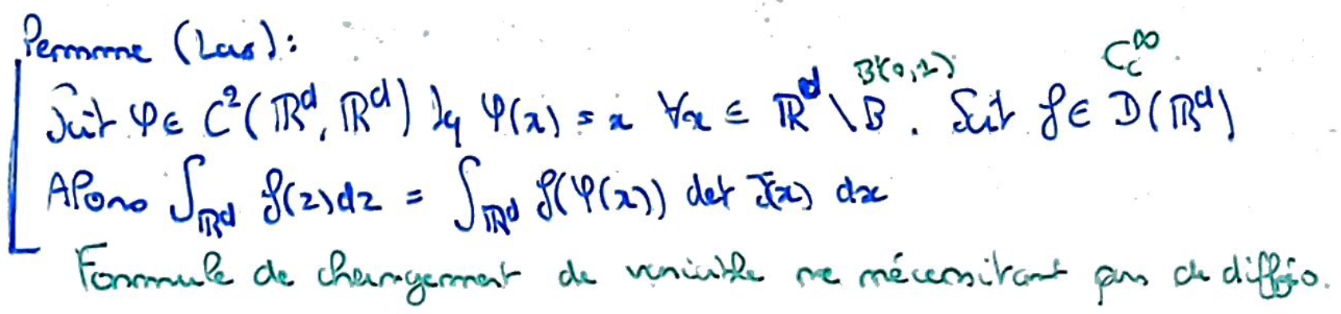 Lemme (Lax) :
C_c^∞
B(0,1)
Soit φ ∈ C²(ℝᵈ, ℝᵈ) tq φ(x) = x ∀x ∈ ℝᵈ \ B . Soit f ∈ D(ℝᵈ)
Alors ∫_{ℝᵈ} f(z) dz = ∫_{ℝᵈ} f(φ(x)) det J(x) dx
Formule de changement de variable ne nécessitant pas de difféo.